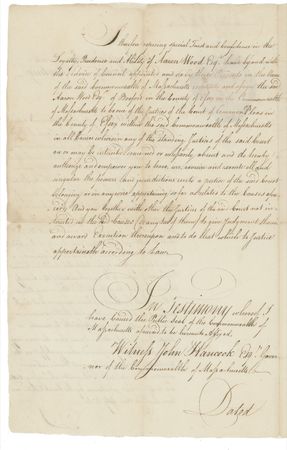 I have reposing special Trust and Confidence in the
Loyalty, Prudence and Ability of Aaron Wood Esqr. have by and with
the Advice of Council appointed and
the said Commonwealth of Massachusetts
Aaron Wood Esqr. of Boxford in the County of Essex in the Commonwealth
of Massachusetts to be one of the Justices of the Court of Common Pleas in
the County of Essex within the said Commonwealth of Massachusetts
in all Causes wherein any of the standing Justices of the said Court
are or may be interested concerned or necessarily absent and do hereby
authorize and empower you to have, use, exercise and execute all and
singular the powers and jurisdictions unto a Justice of the said Court
belonging or in any wise appertaining so far as relates to the Causes afore
said And you together with other the Justices of the said Court not in
terested in the said Causes (or any two of them) to give Judgment therein
and award Execution thereupon and to do that which to Justice
appertaineth according to Law.
In Testimony whereof I
have Caused the Public Seal of the Commonwealth of
Massachusetts aforesaid to be hereunto affixed.
Witness John Hancock Esqr. Gover
nor of the Commonwealth of Massachusetts
Dated